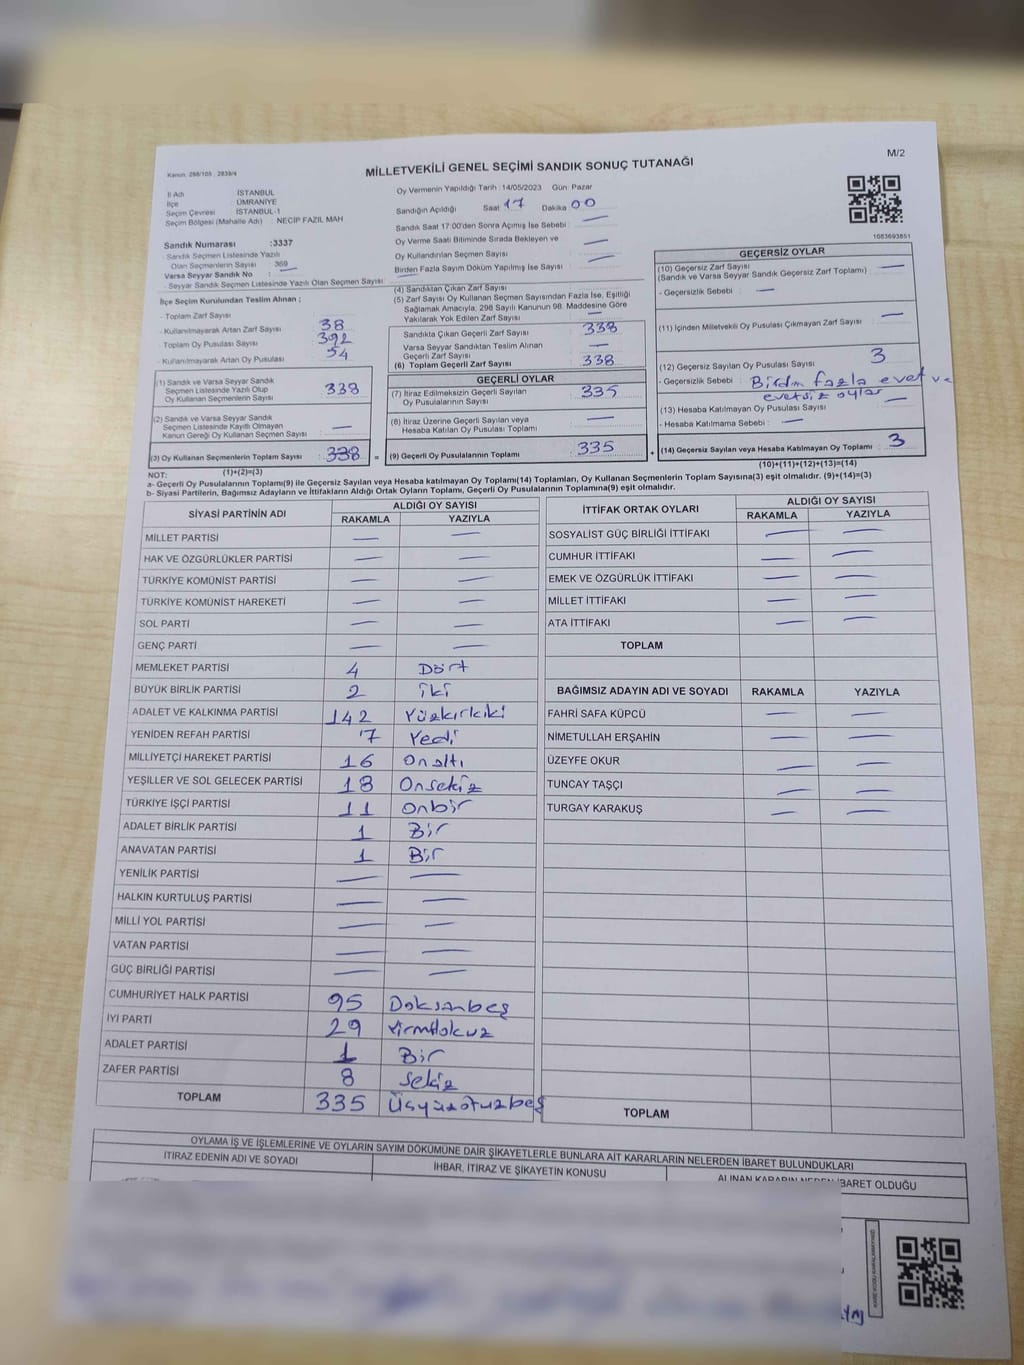 M/2
Kanun: 298/105 ; 2839/4
MİLLETVEKİLİ GENEL SEÇİMİ SANDIK SONUÇ TUTANAĞI
İl Adı : İSTANBUL
İlçe : ÜMRANİYE
Seçim Çevresi : İSTANBUL-1
Seçim Bölgesi (Mahalle Adı) : NECİP FAZIL MAH
Oy Vermenin Yapıldığı Tarih : 14/05/2023 Gün: Pazar
Sandığın Açıldığı Saat 17 Dakika 00
Sandık Saat 17:00'den Sonra Açılmış İse Sebebi :
Oy Verme Saati Bitiminde Sırada Bekleyen ve
Oy Kullandırılan Seçmen Sayısı :
Birden Fazla Sayım Döküm Yapılmış İse Sayısı :
1083693851
Sandık Numarası :3337
- Sandık Seçmen Listesinde Yazılı
Olan Seçmenlerin Sayısı : 369
Varsa Seyyar Sandık No :
- Seyyar Sandık Seçmen Listesinde Yazılı Olan Seçmen Sayısı :
İlçe Seçim Kurulundan Teslim Alınan ;
- Toplam Zarf Sayısı :
- Kullanılmayarak Artan Zarf Sayısı : 38
- Toplam Oy Pusulası Sayısı : 392
- Kullanılmayarak Artan Oy Pusulası : 54
(1) Sandık ve Varsa Seyyar Sandık
Seçmen Listesinde Yazılı Olup
Oy Kullanan Seçmenlerin Sayısı : 338
(2) Sandık ve Varsa Seyyar Sandık
Seçmen Listesinde Kayıtlı Olmayan
Kanun Gereği Oy Kullanan Seçmen Sayısı : —
(3) Oy Kullanan Seçmenlerin Toplam Sayısı : 338 =
(4) Sandıktan Çıkan Zarf Sayısı :
(5) Zarf Sayısı Oy Kullanan Seçmen Sayısından Fazla İse, Eşitliği
Sağlamak Amacıyla, 298 Sayılı Kanunun 98. Maddesine Göre
Yakılarak Yok Edilen Zarf Sayısı : —
Sandıkta Çıkan Geçerli Zarf Sayısı : 338
Varsa Seyyar Sandıktan Teslim Alınan
Geçerli Zarf Sayısı : —
(6) Toplam Geçerli Zarf Sayısı : 338
GEÇERLİ OYLAR
(7) İtiraz Edilmeksizin Geçerli Sayılan
Oy Pusulalarının Sayısı : 335
(8) İtiraz Üzerine Geçerli Sayılan veya
Hesaba Katılan Oy Pusulaları Toplamı : —
(9) Geçerli Oy Pusulalarının Toplamı : 335 +
GEÇERSİZ OYLAR
(10) Geçersiz Zarf Sayısı : —
(Sandık ve Varsa Seyyar Sandık Geçersiz Zarf Toplamı)
- Geçersizlik Sebebi : —
(11) İçinden Milletvekili Oy Pusulası Çıkmayan Zarf Sayısı : —
(12) Geçersiz Sayılan Oy Pusulası Sayısı : 3
- Geçersizlik Sebebi : Birden fazla evet ve
evetsiz oylar
(13) Hesaba Katılmayan Oy Pusulası Sayısı : —
- Hesaba Katılmama Sebebi : —
(14) Geçersiz Sayılan veya Hesaba Katılmayan Oy Toplamı : 3
NOT: (1)+(2)=(3)
(10)+(11)+(12)+(13)=(14)
a- Geçerli Oy Pusulalarının Toplamı(9) ile Geçersiz Sayılan veya Hesaba Katılmayan Oy Toplamı(14) Toplamları, Oy Kullanan Seçmenlerin Toplam Sayısına(3) eşit olmalıdır. (9)+(14)=(3)
b- Siyasi Partilerin, Bağımsız Adayların ve İttifakların Aldığı Ortak Oyların Toplamı, Geçerli Oy Pusulalarının Toplamına(9) eşit olmalıdır.
SİYASİ PARTİNİN ADI ALDIĞI OY SAYISI
RAKAMLA YAZIYLA
MİLLET PARTİSİ — —
HAK VE ÖZGÜRLÜKLER PARTİSİ — —
TÜRKİYE KOMÜNİST PARTİSİ — —
TÜRKİYE KOMÜNİST HAREKETİ — —
SOL PARTİ — —
GENÇ PARTİ — —
MEMLEKET PARTİSİ 4 Dört
BÜYÜK BİRLİK PARTİSİ 2 iki
ADALET VE KALKINMA PARTİSİ 142 Yüzkırkiki
YENİDEN REFAH PARTİSİ 7 Yedi
MİLLİYETÇİ HAREKET PARTİSİ 16 Onaltı
YEŞİLLER VE SOL GELECEK PARTİSİ 18 Onsekiz
TÜRKİYE İŞÇİ PARTİSİ 11 Onbir
ADALET BİRLİK PARTİSİ 1 Bir
ANAVATAN PARTİSİ 1 Bir
YENİLİK PARTİSİ — —
HALKIN KURTULUŞ PARTİSİ — —
MİLLİ YOL PARTİSİ — —
VATAN PARTİSİ — —
GÜÇ BİRLİĞİ PARTİSİ — —
CUMHURİYET HALK PARTİSİ 95 Doksanbeş
İYİ PARTİ 29 Yirmidokuz
ADALET PARTİSİ 1 Bir
ZAFER PARTİSİ 8 Sekiz
TOPLAM 335 Üçyüzotuzbeş
İTTİFAK ORTAK OYLARI ALDIĞI OY SAYISI
RAKAMLA YAZIYLA
SOSYALİST GÜÇ BİRLİĞİ İTTİFAKI — —
CUMHUR İTTİFAKI — —
EMEK VE ÖZGÜRLÜK İTTİFAKI — —
MİLLET İTTİFAKI — —
ATA İTTİFAKI — —
TOPLAM
BAĞIMSIZ ADAYIN ADI VE SOYADI RAKAMLA YAZIYLA
FAHRİ SAFA KÜPCÜ — —
NİMETULLAH ERŞAHİN — —
ÜZEYFE OKUR — —
TUNCAY TAŞÇI — —
TURGAY KARAKUŞ — —
TOPLAM
OYLAMA İŞ VE İŞLEMLERİNE VE OYLARIN SAYIM DÖKÜMÜNE DAİR ŞİKAYETLERLE BUNLARA AİT KARARLARIN NELERDEN İBARET BULUNDUKLARI
İTİRAZ EDENİN ADI VE SOYADI İHBAR, İTİRAZ VE ŞİKAYETİN KONUSU ALINAN KARARIN NEDEN İBARET OLDUĞU